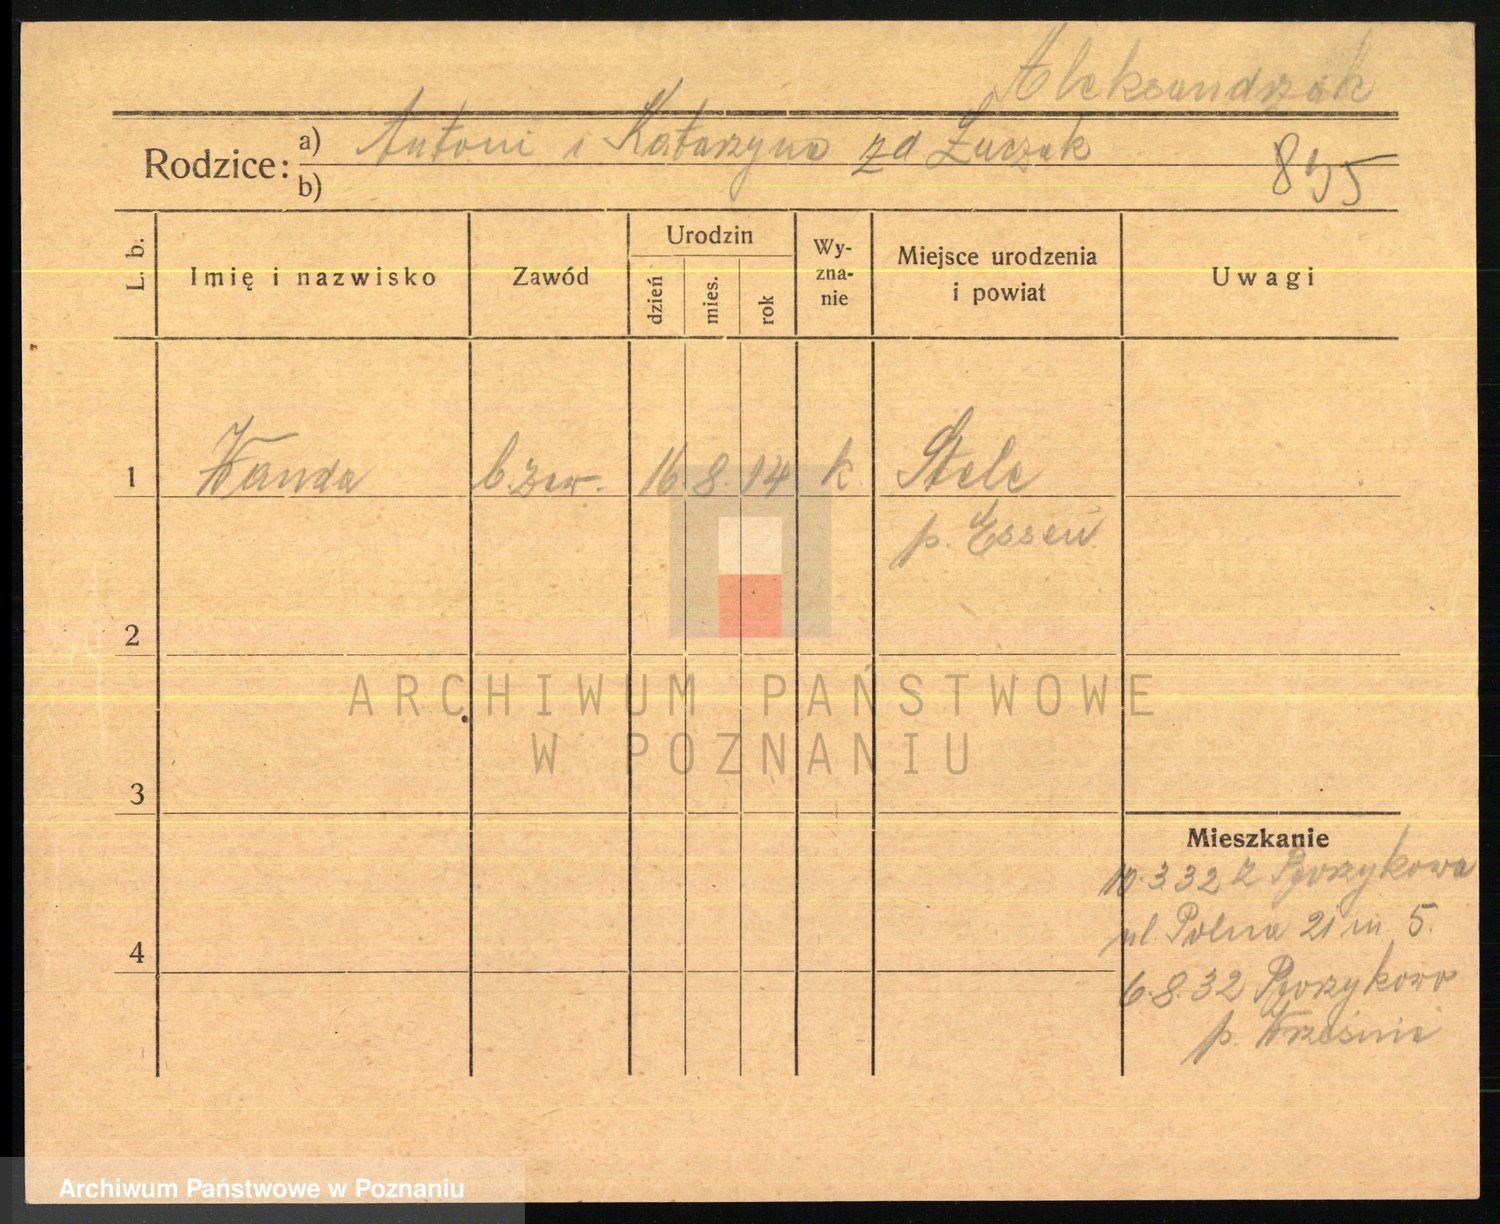 Aleksandrzak
Rodzice: a) Antoni i Katarzyna zd Łuczak
b) 895
L. b. Imię i nazwisko Zawód Urodzin dzień mies. rok Wy-zna-nie Miejsce urodzenia i powiat Uwagi
1 Wanda b. zaw. 16 8. 14 k Stele
p. Essen
2
ARCHIWUM PAŃSTWOWE
W POZNANIU
3
Mieszkanie
10.3 32 z
ul. Polna 21 m 5.
4
6.8.32
p. Września
Archiwum Państwowe w Poznaniu